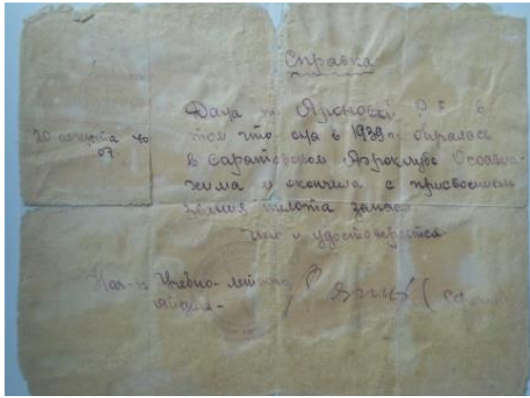 Справка
20 августа 40
07.
Дана т.
том что она в 1939 г. обралась
в Саратовском Аэроклубе Осоавиа-
хима и окончила с присвоением
звания пилота запаса
что и удостоверяется.
Нач-к Учебно-летной